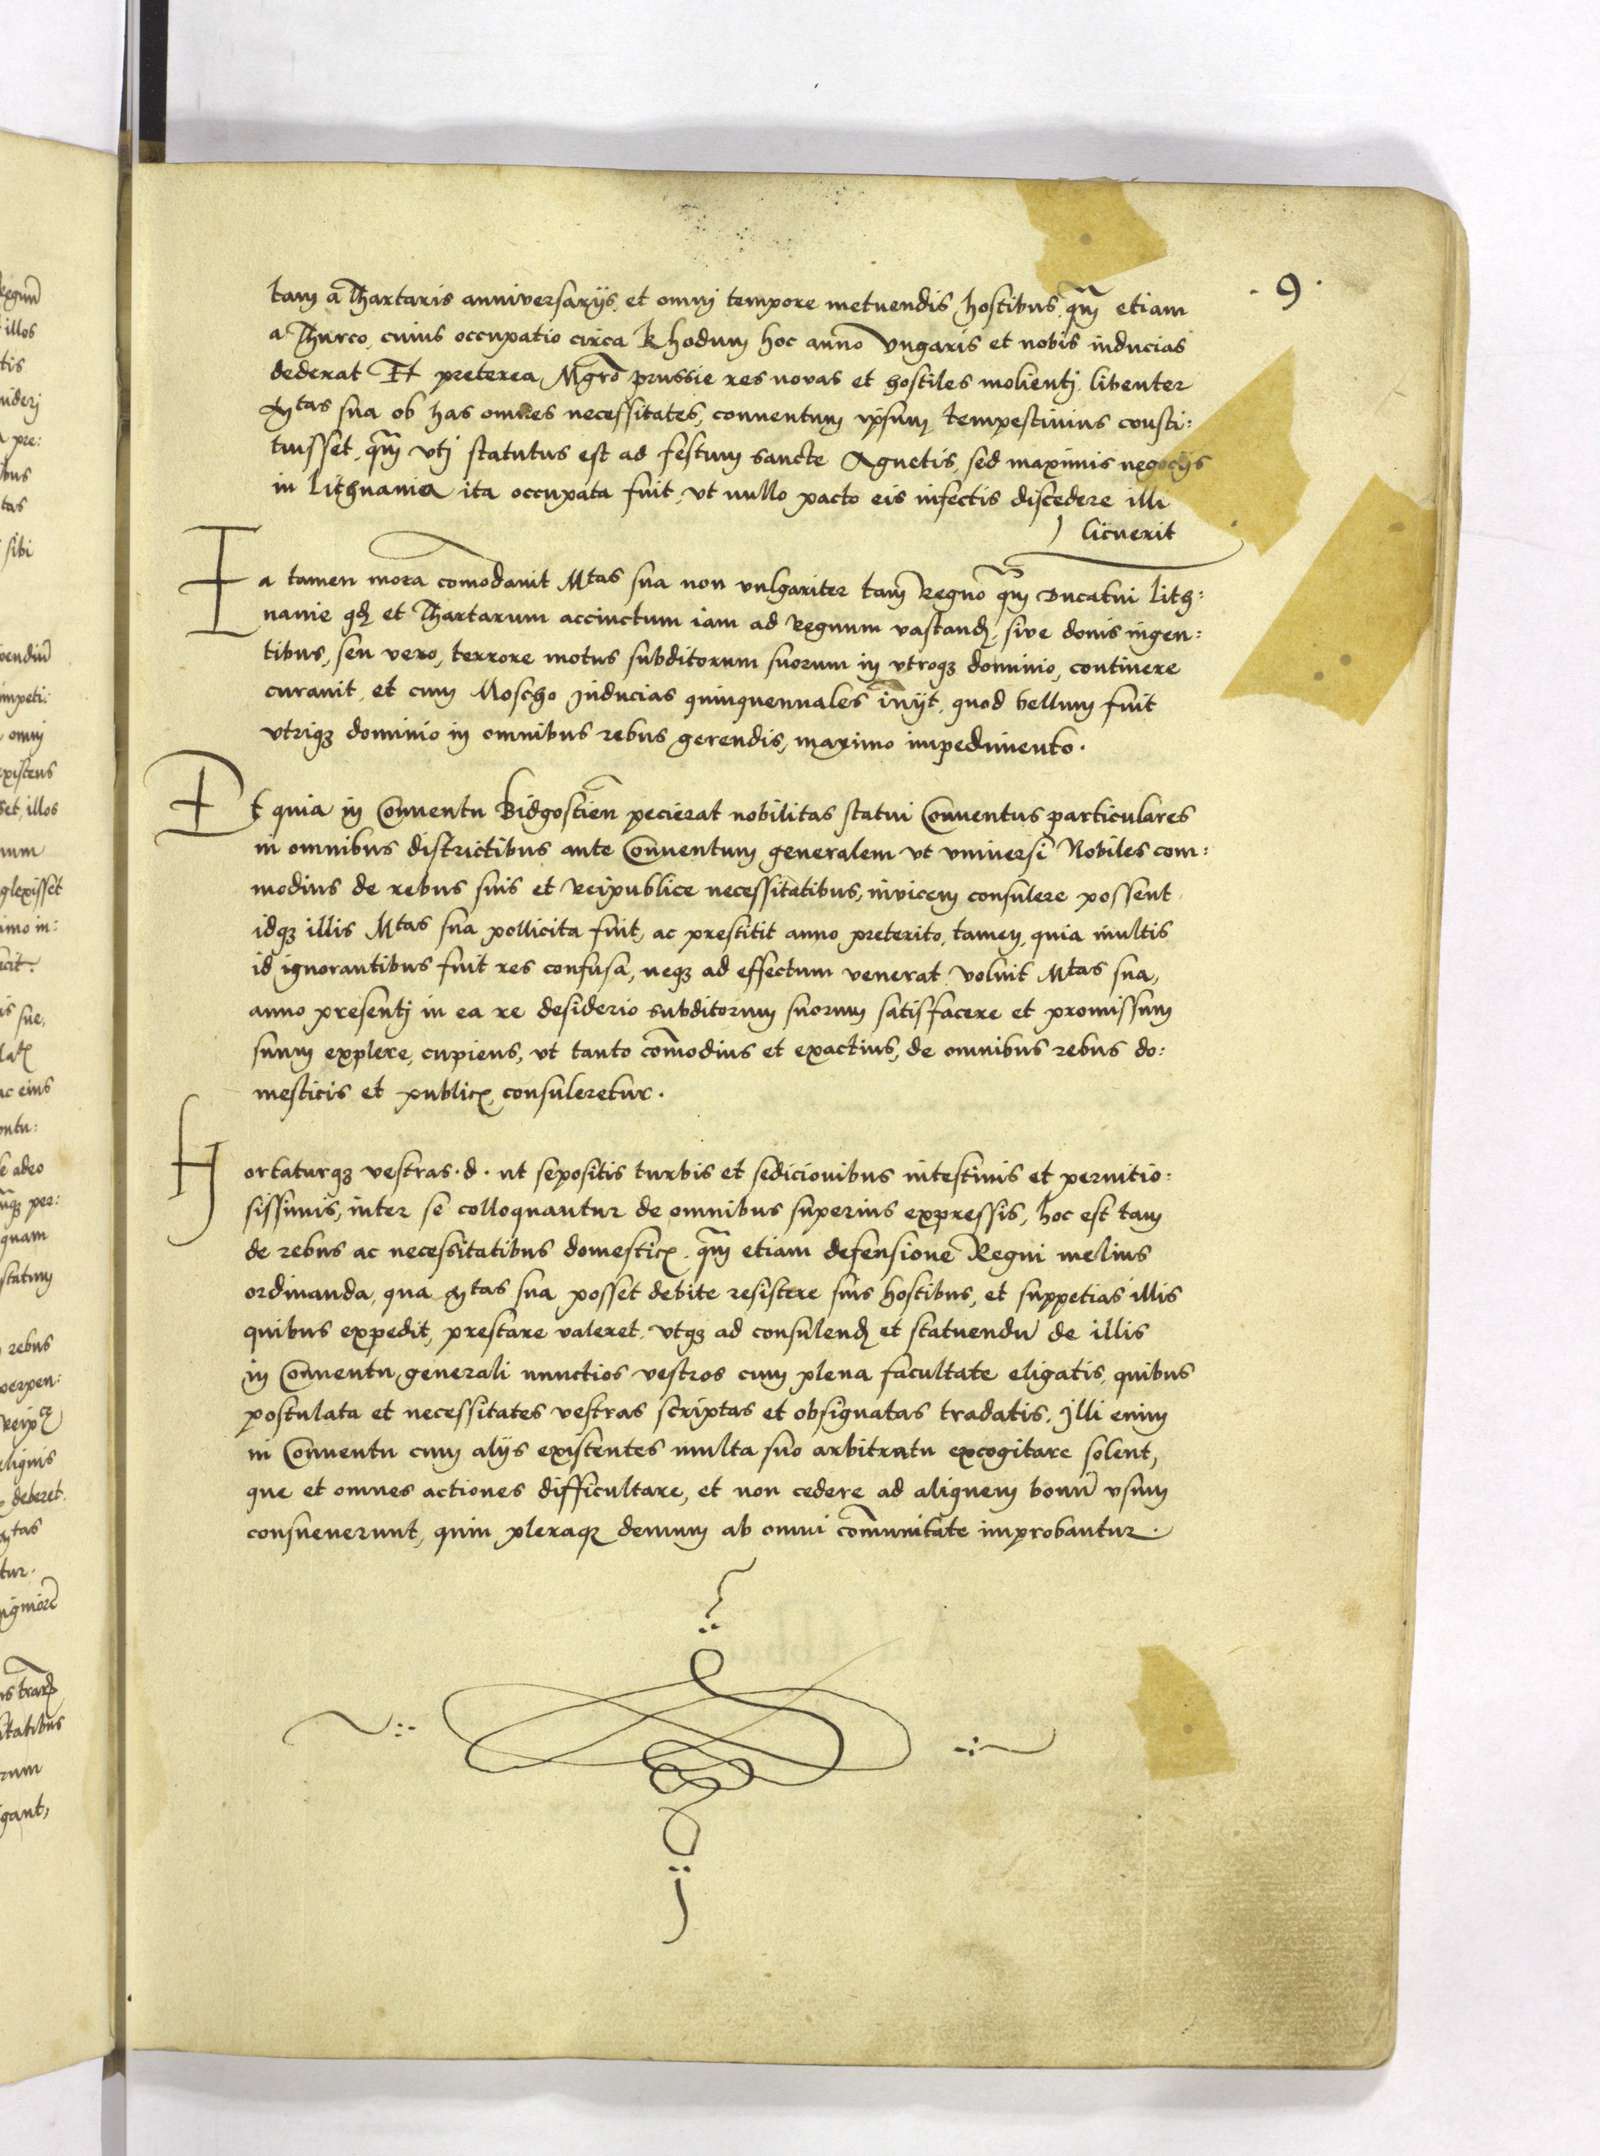 . 9 .
tam a Thartaris anniversarijs, et omnj tempore metuendis hostibus, qm̄ etiam
a Thurco, cuius occupatio circa Rhodum hoc anno Ungaris et nobis inducias
dederat Et preterea Mgrō prussie res novas et hostiles molientj libenter
Mtas sua ob has omnes necessitates, conventum ipsum tempestivius consti:
tuisset, qm̄ vtj statutus est ad festum sancte Agnetis, sed maximis negocijs
in Lithuania ita occupata fuit, vt nullo pacto eis infectis discedere illi
licuerit
Ea tamen mora comōdavit Mtas sua non vulgariter tam Regno qm̄ Ducatui Lith:
uanie qđ et Thartarum accinctum iam ad Regnum vastanđ, sive donis ingen:
tibus, seu vero, terrore motus subditorum suorum in vtroqꝫ dominio, continere
curavit, et cum Moscho Inducias quinquennales inijt, quod bellum fuit
vtriqꝫ dominio in omnibus rebus gerendis, maximo impedimento.
Et quia in Conventu Bidgostien̄ pecierat nobilitas statui Conventus particulares
in omnibus districtibus ante Conventum generalem vt vniversi Nobiles com:
modius de rebus suis et Reipublice necessitatibus, invicem consulere possent
idqꝫ illis Mtas sua pollicita fuit, ac prestitit anno preterito, tamen, quia multis
id ignorantibus fuit res confusa, neqꝫ ad effectum venerat voluit Mtas sua,
anno presentj in ea re desiderio subditorum suorum satisfacere et promissum
suum explere, cupiens, vt tanto com̄odius et exactius, de omnibus rebus do:
mesticis et publicꝭ consuleretur.
Hortaturqꝫ vestras .d. ut sepositis turbis et sedicionibus intestinis et pernitio:
sissimis, inter se colloquantur de omnibus superius expressis, hoc est tam
de rebus ac necessitatibus domesticꝭ, qm̄ etiam defensione Regni melius
ordinanda, qua Mtas sua posset debite resistere suis hostibus, et suppetias illis
quibus expedit, prestare valeret, vtqꝫ ad consulenđ et statuendū de illis
in Conventu generali nunctios vestros cum plena facultate eligatis, quibus
postulata et necessitates vestras scriptas et obsignatas tradatis. Illi enim
in Conventu cum alijs existentes multa suo arbitratu excogitare solent,
que et omnes actiones difficultare, et non cedere ad aliquem bonū vsum
consueverunt, quin pleraqꝫ demum ab omni com̄unitate improbantur.